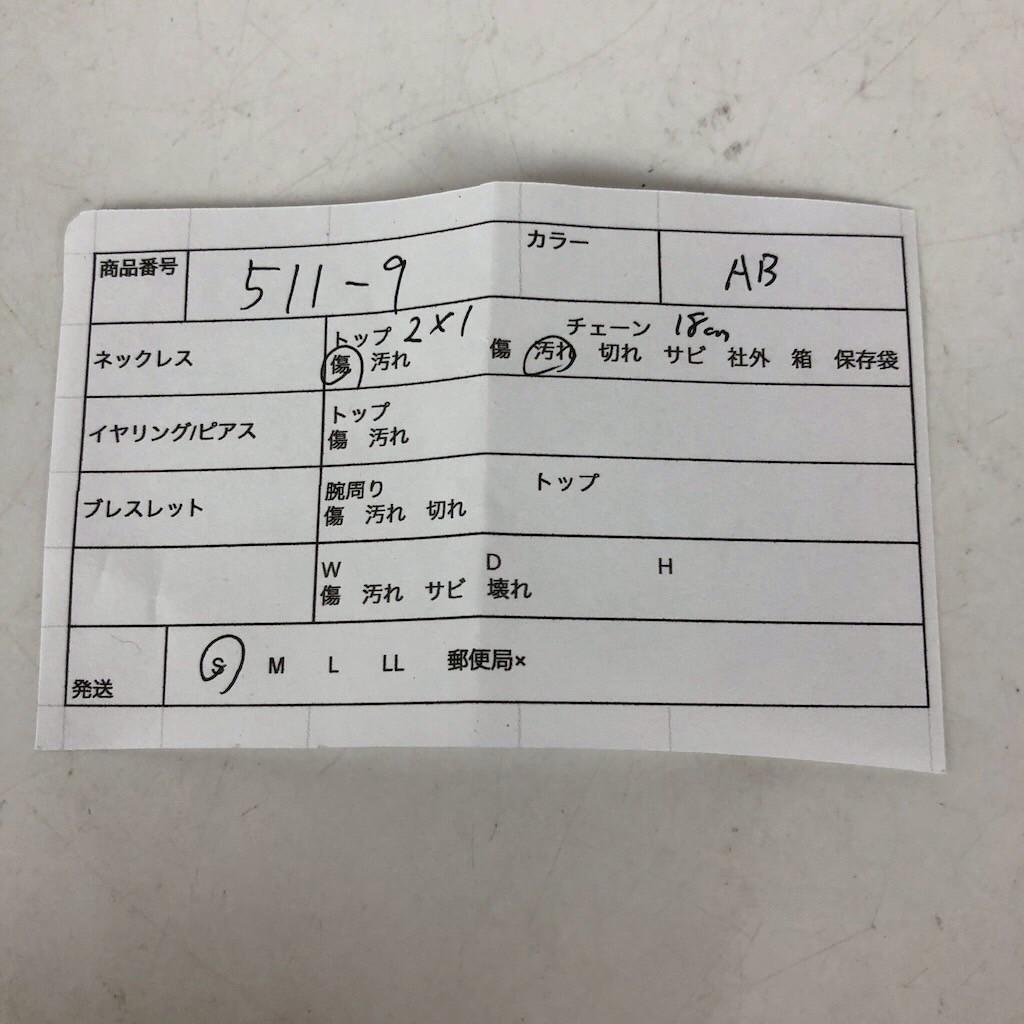 商品番号 511-9 カラー AB
ネックレス トップ 2×1 チェーン 18cm
傷 汚れ 傷 汚れ 切れ サビ 社外 箱 保存袋
イヤリング/ピアス トップ
傷 汚れ
ブレスレット 腕周り トップ
傷 汚れ 切れ
W D H
傷 汚れ サビ 壊れ
発送 S M L LL 郵便局×